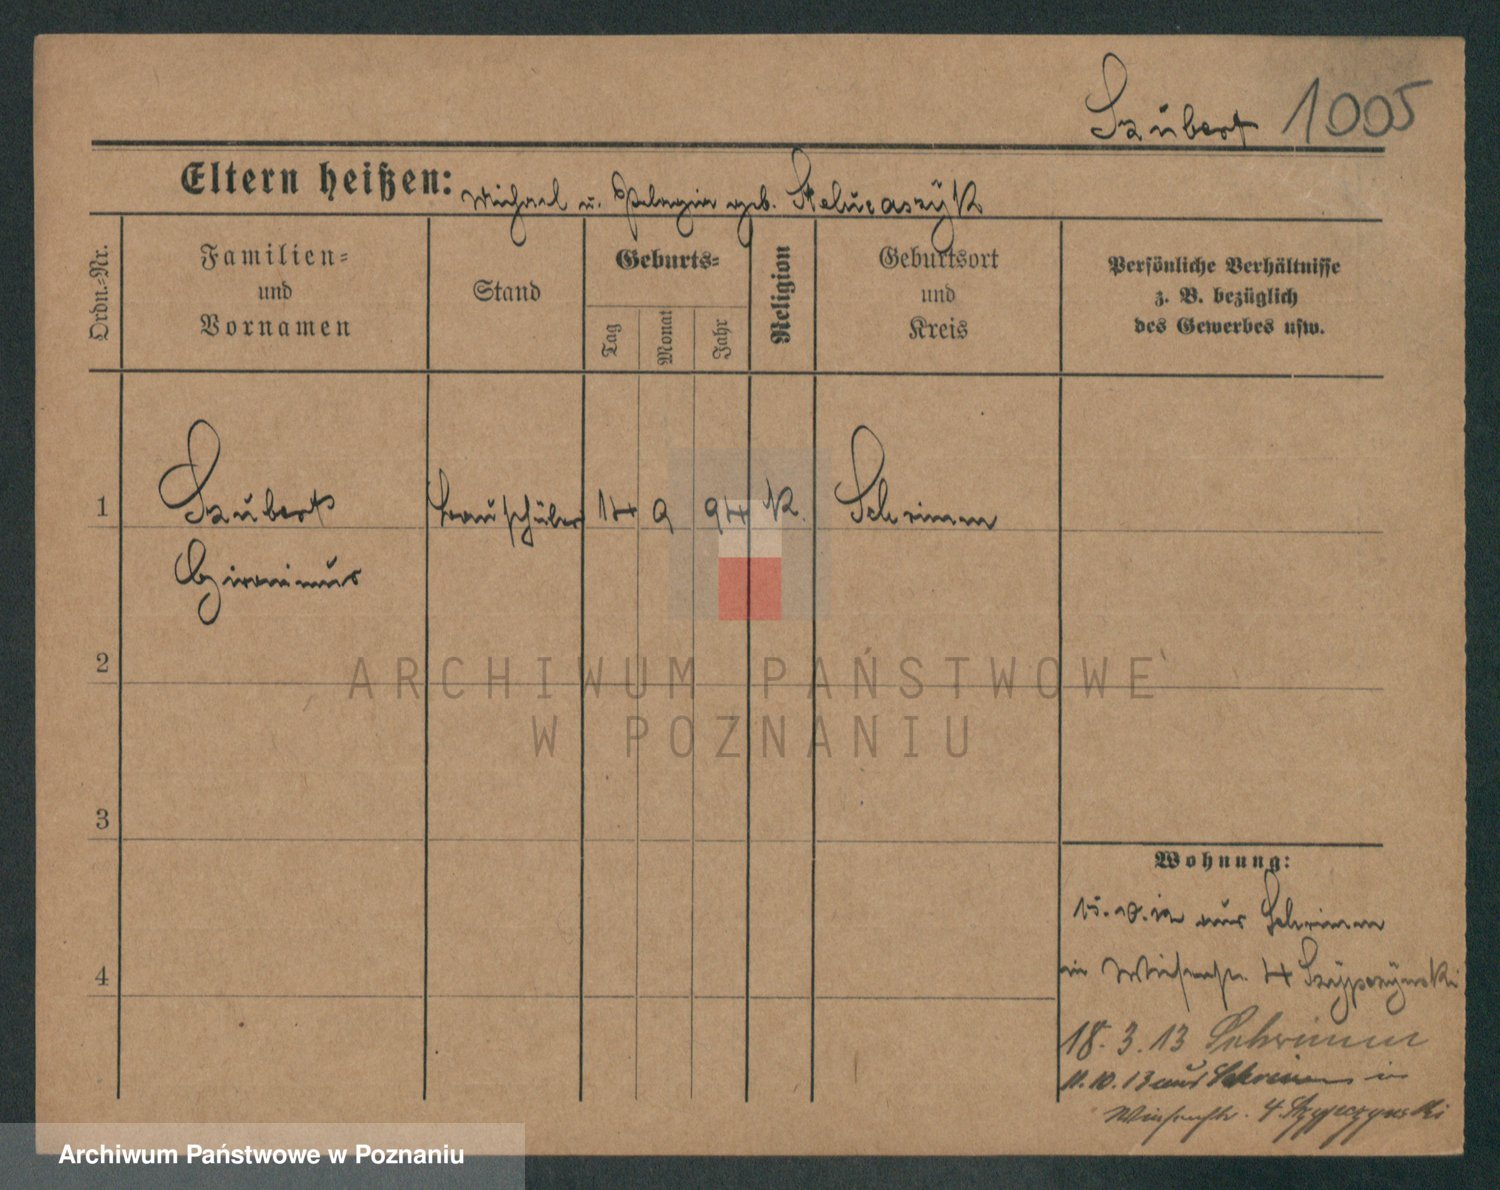 Szubert 1005
Eltern heißen: Michael u. Pelagia geb. Stelucaszÿk
Ordn.-Nr.
Familien=
und
Vornamen
Stand
Geburts=
Tag
Monat
Jahr
Religion
Geburtsort
und
Kreis
Persönliche Verhältnisse
z. B. bezüglich
des Gewerbes usw.
1 Szubert Bauschüler 14 9 94 K. Schrimm
Gironimus
2
ARCHIWUM PAŃSTWOWE
W POZNANIU
3
Wohnung:
15. 10. 12 aus Schrimm
4
in Wiesenstr. 4 Szÿpczÿnski
18. 3. 13 Schrimm
11. 10. 13 aus Schrimm in
Wiesenstr. 4 Szypczynski
Archiwum Państwowe w Poznaniu